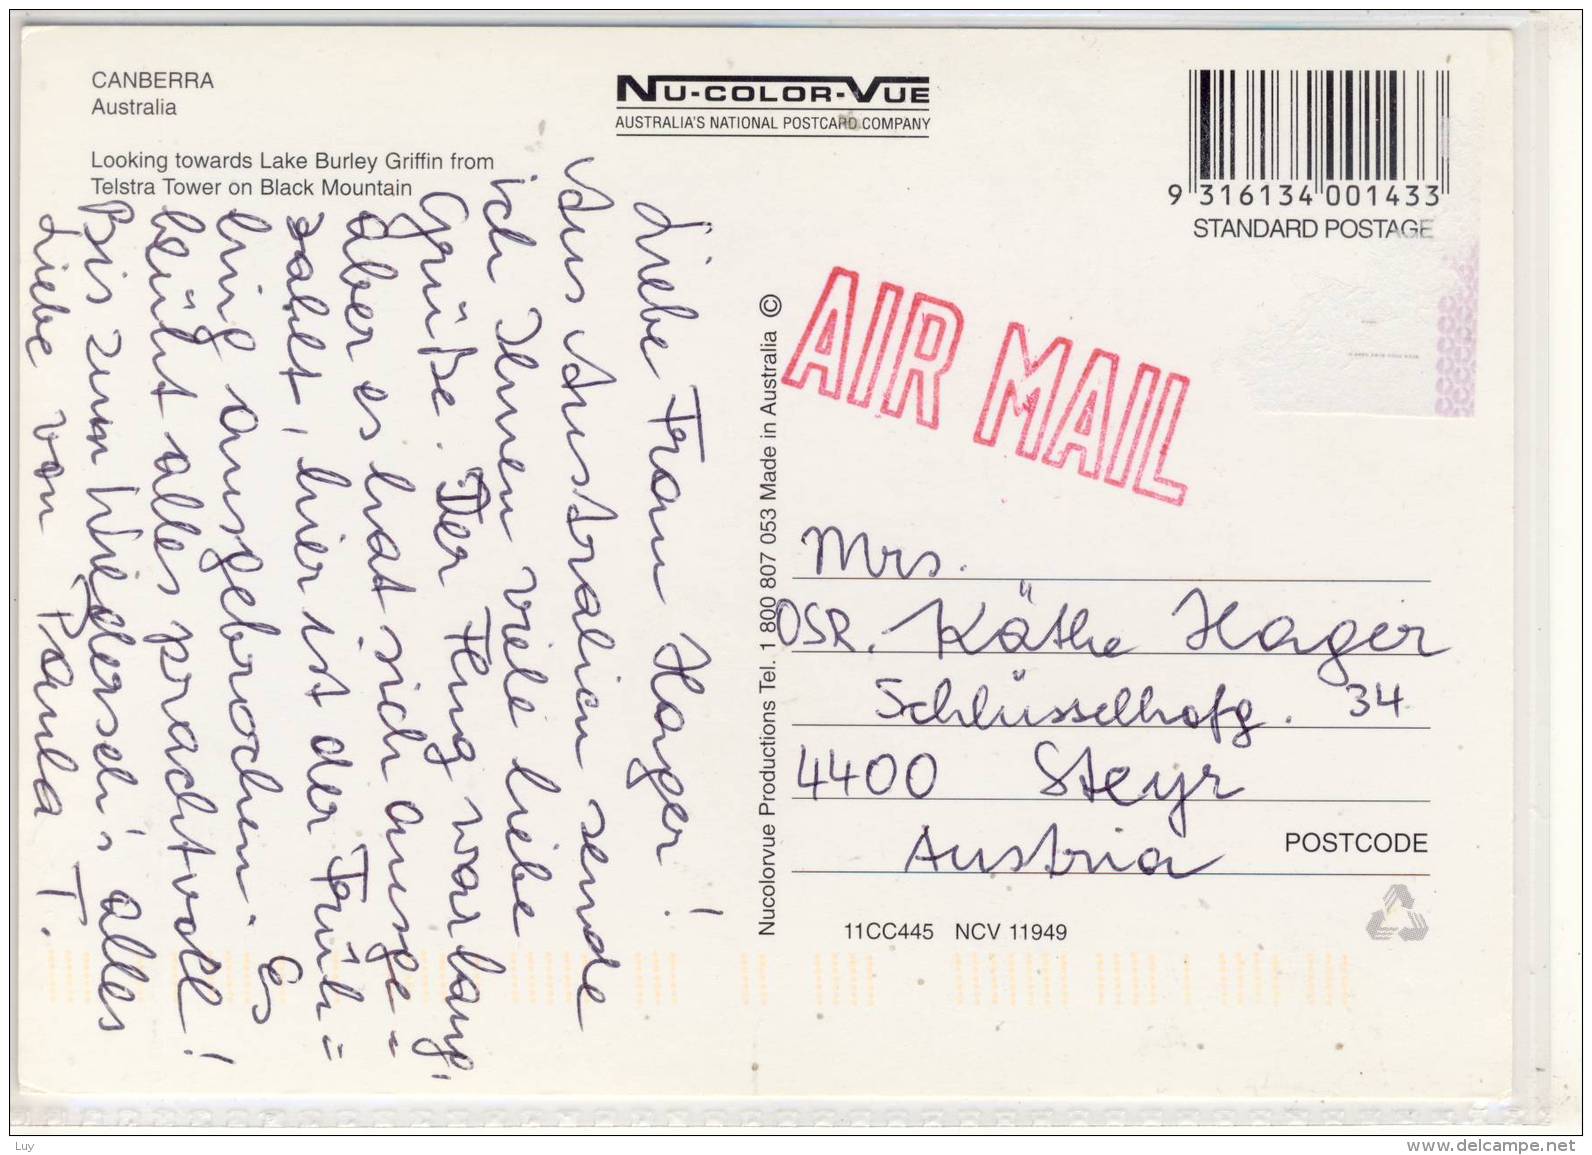 CANBERRA
Australia
Looking towards Lake Burley Griffin from
Telstra Tower on Black Mountain
NU-COLOR-VUE
AUSTRALIA'S NATIONAL POSTCARD COMPANY
9 316134 001433
STANDARD POSTAGE
AIR MAIL
Liebe Frau Hager!
Aus Australien sende
ich Ihnen viele liebe
Grüße. Der Flug war lang,
aber es hat sich ausge=
zahlt, hier ist der Früh=
ling ausgebrochen. Es
blüht alles prachtvoll!
Bis zum Wiederseh'n alles
Liebe von Paula T.
Nucolorvue Productions Tel. 1 800 807 053 Made in Australia ©
Mrs.
OSR. Käthe Hager
Schlüsselhofg. 34
4400 Steyr
Austria
POSTCODE
11CC445 NCV 11949
Luy
www.delcampe.net